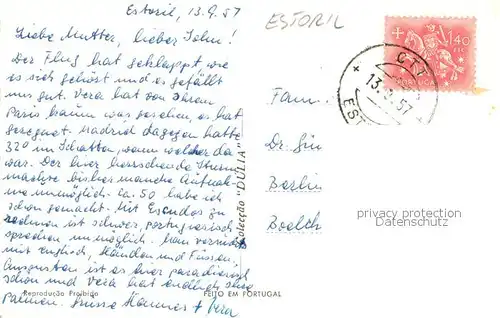 Estoril, 13.9.57
ESTORIL
Liebe Mutter, lieber John!
Der Flug hat geklappt wie
es sich gehört und es gefällt
uns gut. Vera hat von Ihrem
Paris kaum was gesehen, es hat
geregnet. Madrid dagegen hatte
32° im Schatten, wenn welcher da
war. Der hier herrschende Sturm
machte bisher manche Aufnah-
me unmöglich. Ca. 50 habe ich
schon gemacht. Mit Escudos zu
rechnen ist schwer, portugiesisch
sprechen unmöglich. Man versucht's
mit Englisch, Händen und Füssen.
Ansonsten ist es hier paradiesisch
schön und Vera hat endlich ihre
Palmen. Grüsse Hannes + Vera
Reprodução Proibida
FEITO EM PORTUGAL
Colecção "DÚLIA"
1$40
PORTUGAL
CTT
13. 9. 57
EST
Fam
Dr. Gün
Berlin
Boelck
privacy protection
Datenschutz